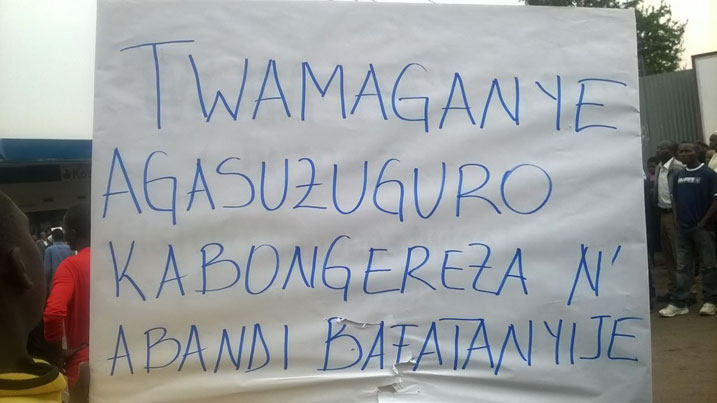 TWAMAGANYE
AGASUZUGURO
KABONGEREZA N'
ABANDI BAFATANYIJE